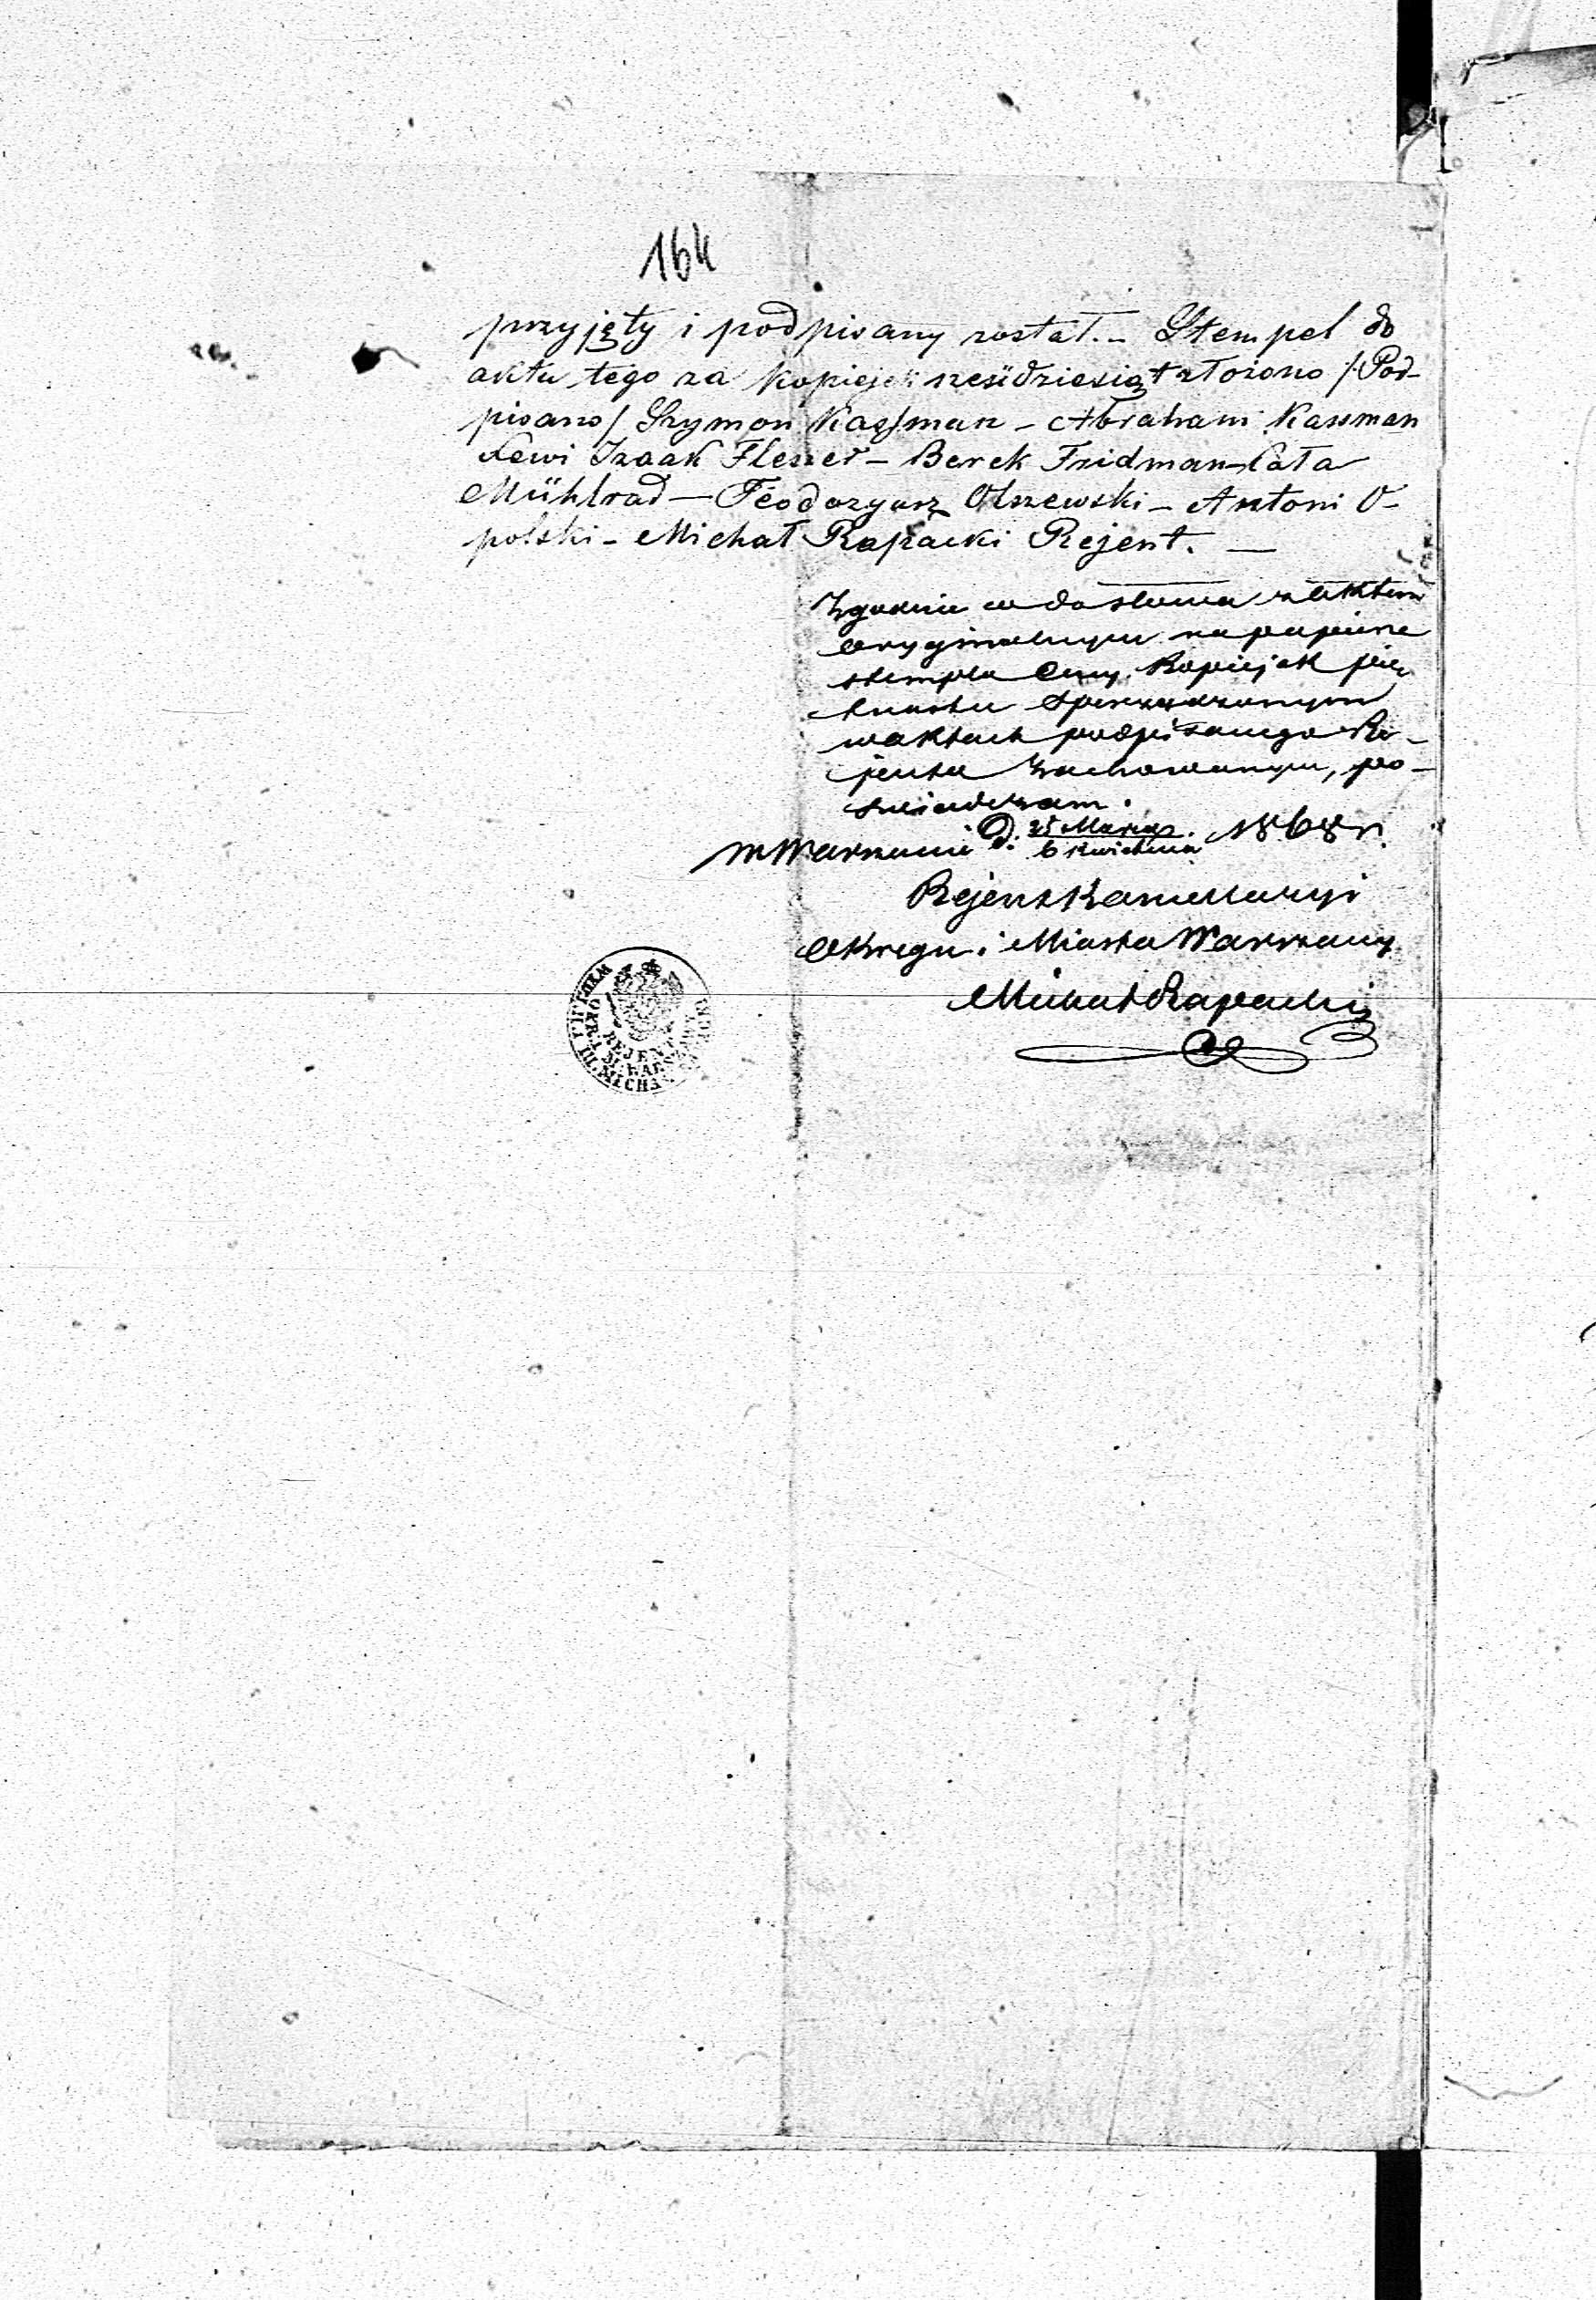 164
przyjęty i podpisany został. — Stempel do
aktu tego za kopiejek sześćdziesiąt złożono /:Pod-
pisano/ Szymon Kassman — Abraham Kassman
Lewi Izaak Fleszer — Berek Fridman — Cała
Mühlrad — Teodozyusz Olszewski — Antoni O-
polski — Michał Rapacki Rejent. —
Zgodnie co do słowa z aktem
oryginalnym na papierze
stempla ceny kopiejek pię
tnastu sporządzonym
w aktach podpisanego Re-
jenta zachowanym, po-
świadczam.
w Warszawie d. 25 Marca / 6 Kwietnia 1868 r.
Rejent Kancellaryi
Okręgu i Miasta Warszawy
Michał Rapacki
REJENT
OKR. I M. WARSZ
MICHA